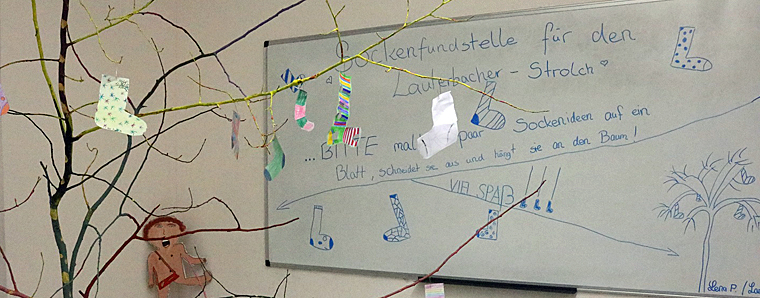 Sockenfundstelle für den
Lauterbacher - Strolch
... BITTE mal paar Sockenideen auf ein
Blatt, schneidet sie aus und hängt sie an den Baum!
VIEL SPAß
Lena P. /